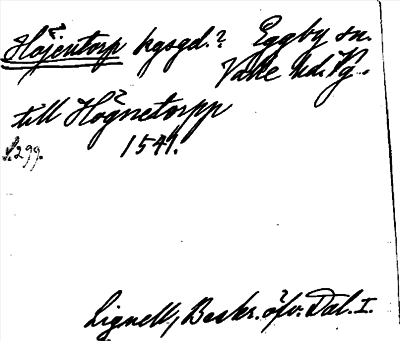 Höjentorp kgsgd.? Eggby sn.
Valle hd. Vg.
till Högnetorpp
1541.
s. 299.
Lignell, Beskr. öfv. Dal. I.